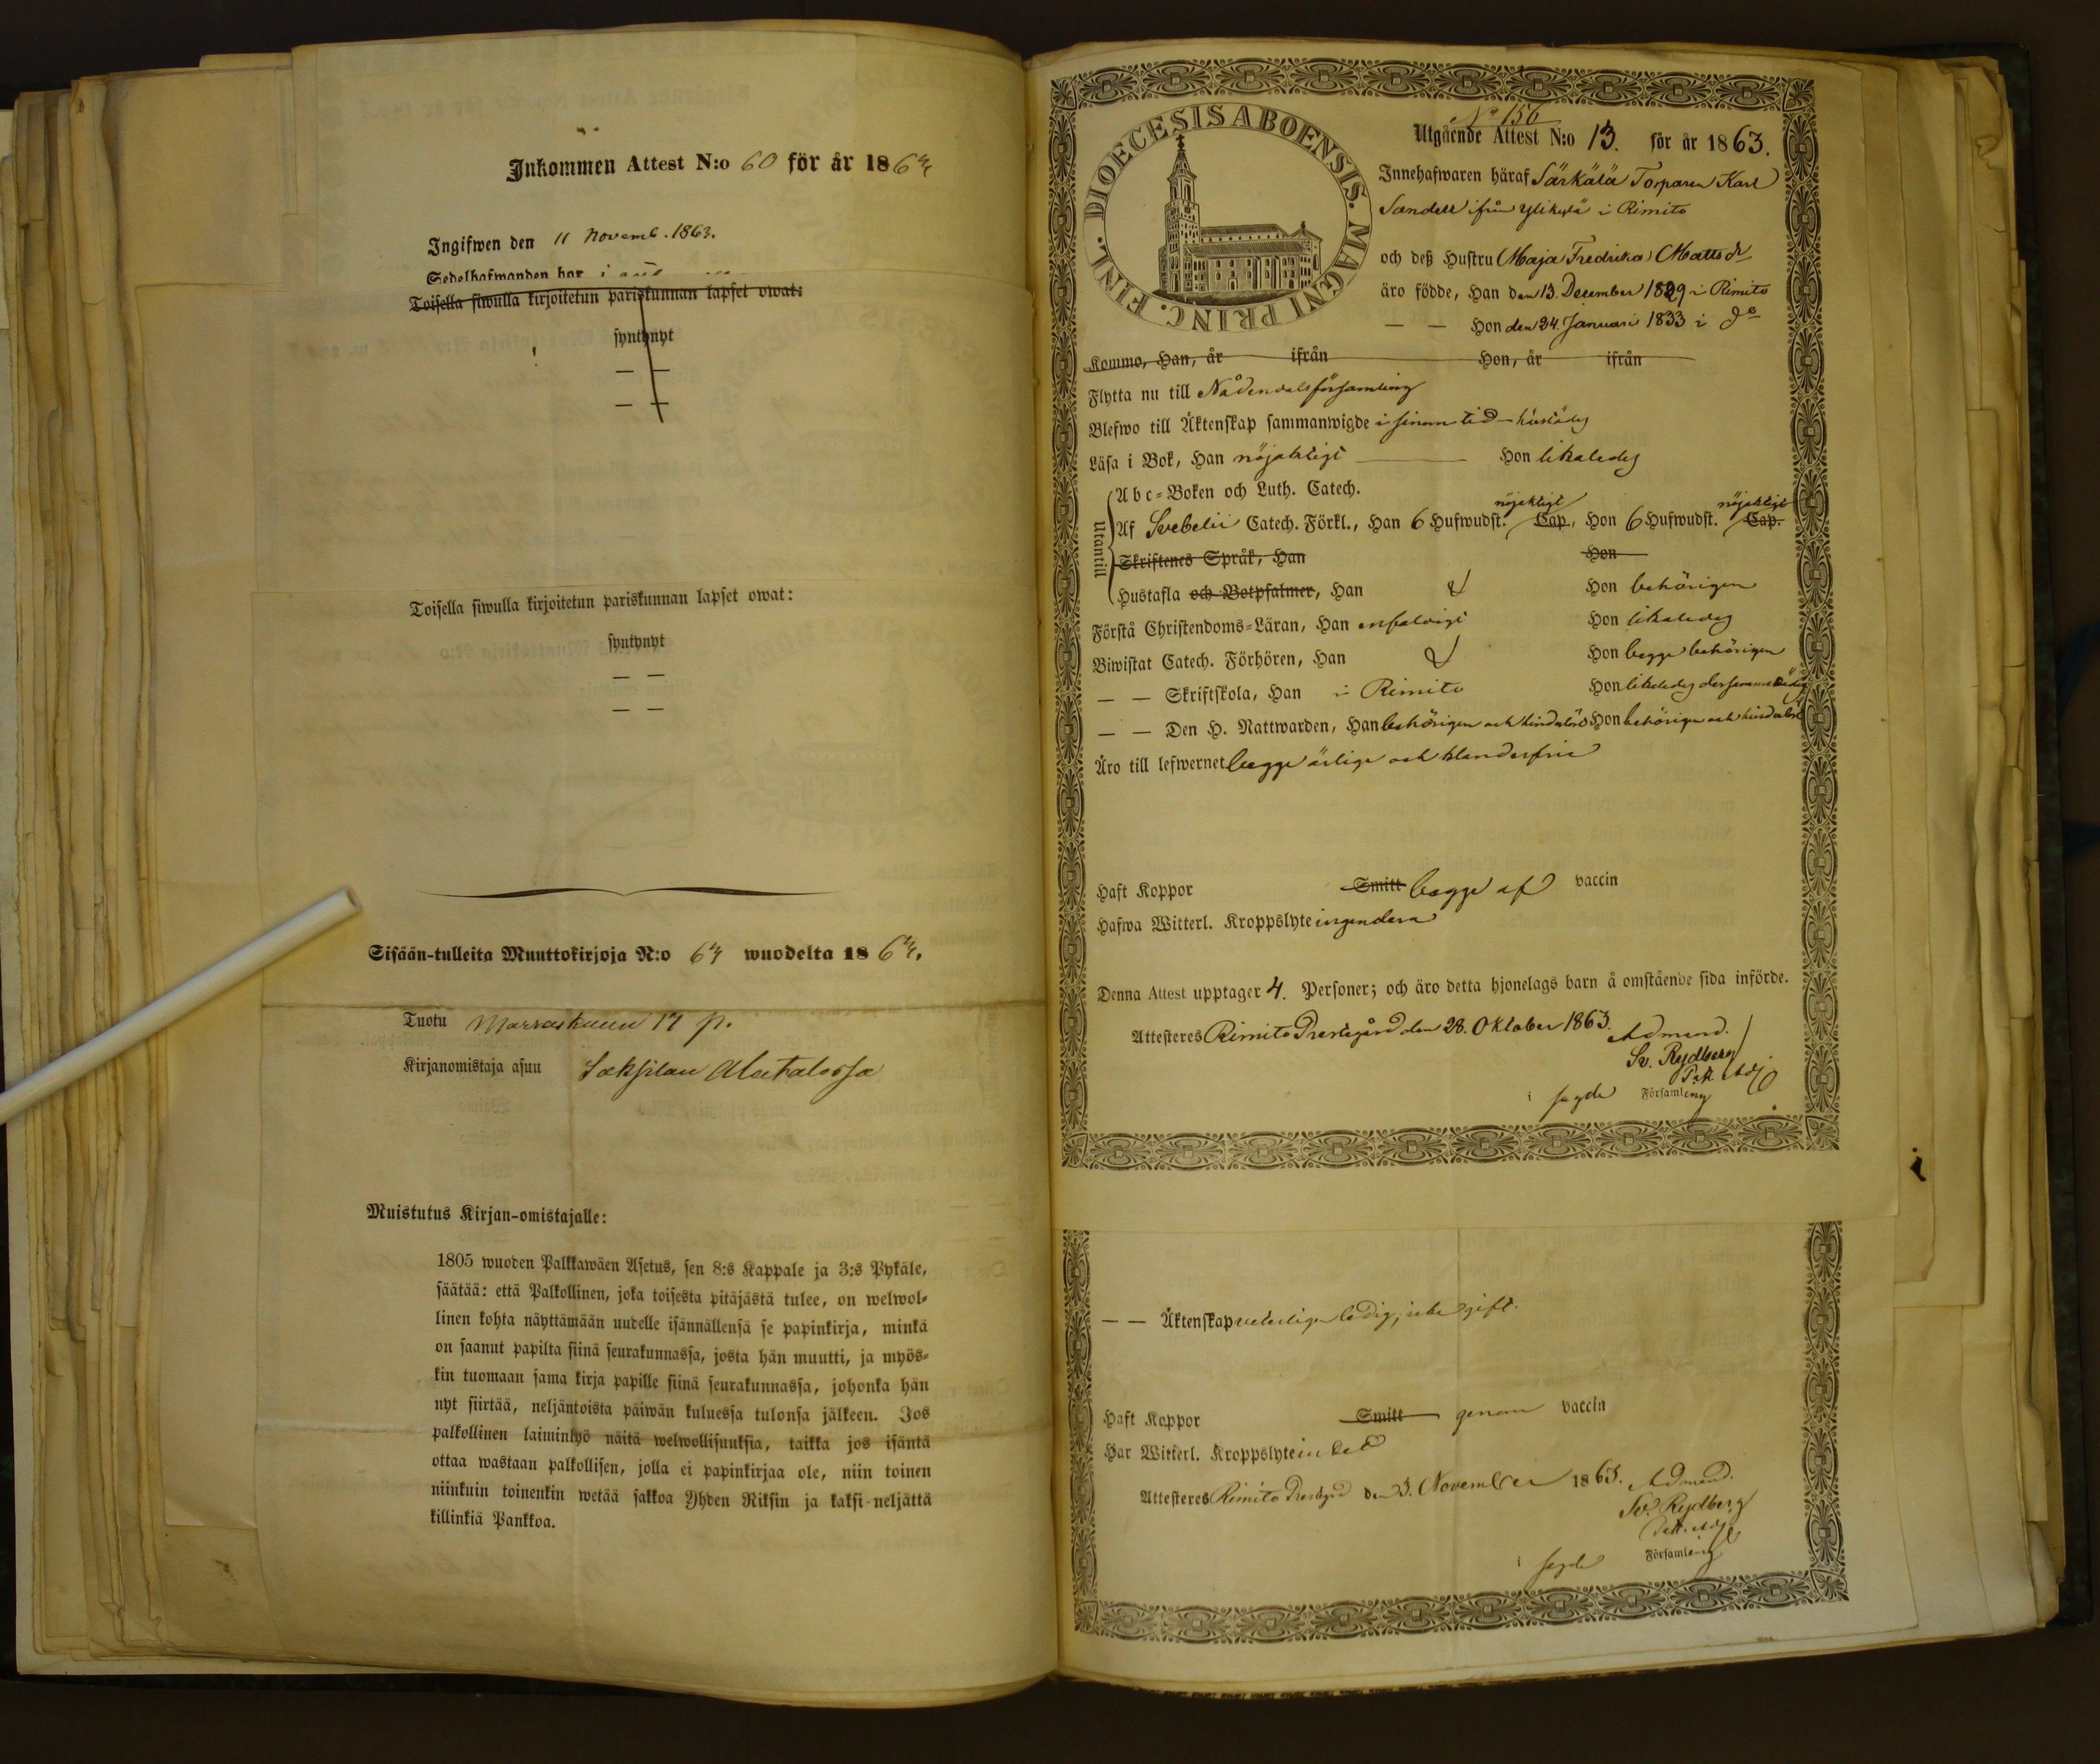 Inkommen Attest N:o 60 för år 1863
Ingifwen den 11 Novemb. 1863.
Sedelhafwanden bor i
Toisella siwulla kirjoitetun pariskunnan lapset owat:
syntynyt
— —
— —
Toisella siwulla kirjoitetun pariskunnan lapset owat:
syntynyt
— —
— —
Sisään-tulleita Muuttokirjoja N:o 63 wuodelta 1863.
Tuotu Marraskuun 17 p.
Kirjanomistaja asuu Alatalossa
Muistutus Kirjan-omistajalle:
1805 wuoden Palkkawäen Asetus, sen 8:s Kappale ja 3:s Pykäle,
säätää: että Palkollinen, joka toisesta pitäjästä tulee, on welwol-
linen kohta näyttämään uudelle isännällensä se papinkirja, minkä
on saanut papilta siinä seurakunnassa, josta hän muutti, ja myös-
kin tuomaan sama kirja papille siinä seurakunnassa, johonka hän
nyt siirtää, neljäntoista päiwän kuluessa tulonsa jälkeen. Jos
palkollinen laiminlyö näitä welwollisuuksia, taikka jos isäntä
ottaa wastaan palkollisen, jolla ei papinkirjaa ole, niin toinen
niinkuin toinenkin wetää sakkoa Yhden Riksin ja kaksi-neljättä
killinkiä Pankkoa.
DIOECESIS ABOENSIS. MAGNI PRINC. FINL.
No 156
Utgående Attest N:o 13. för år 1863.
Innehafwaren häraf Särkälä Torparen Karl
Sandell ifrån Ylikylä i Rimito
och deß Hustru Maja Fredrika Matts dr
äro födde, Han den 13. December 1829 i Rimito
— — Hon den 24. Januari 1833 i do
Komma, Han, år ifrån Hon, år ifrån
Flytta nu till Nådendals församling
Blefwo till Äktenskap sammanwigde i sinom tid härstädes
Läsa i Bok, Han nöjaktigt Hon likaledes
Utantill
Abc-Boken och Luth. Catech.
nöjaktigt nöjaktigt
Af Svebelii Catech. Förkl., Han 6 Hufwudst. Cap, Hon 6 Hufwudst. Cap.
Skriftenes Språk, Han Hon
Hustafla och Botpsalmer, Han & Hon behörigen
Förstå Christendoms-Läran, Han enfaldigt Hon likaledes
Biwistat Catech. Förhören, Han & Hon begge behörigen
— — Skriftskola, Han i Rimito Hon likaledes dersammastädes
— — Den H. Nattwarden, Han behörigen och hinderlös Hon behörigen och hinderlös
Äro till lefwernet begge ärlige och klanderfrie
Haft Koppor Smitt begge af vaccin
Hafwa Witterl. Kroppslyte ingendera
Denna Attest upptager 4. Personer; och äro detta hjonelags barn å omstående sida införde.
Attesteres Rimito Prestegård den 28. Oktober 1863.
Sv. Rydberg
Past. Adj
i sagde Församling
— — Äktenskap ledig, icke gift.
Haft Koppor Smitt genom vaccin
Har Witterl. Kroppslyte intet
Attesteres Rimito Prestgård den 3. November 1863.
Sv. Rydberg
Past. Adj
i sagde Församling